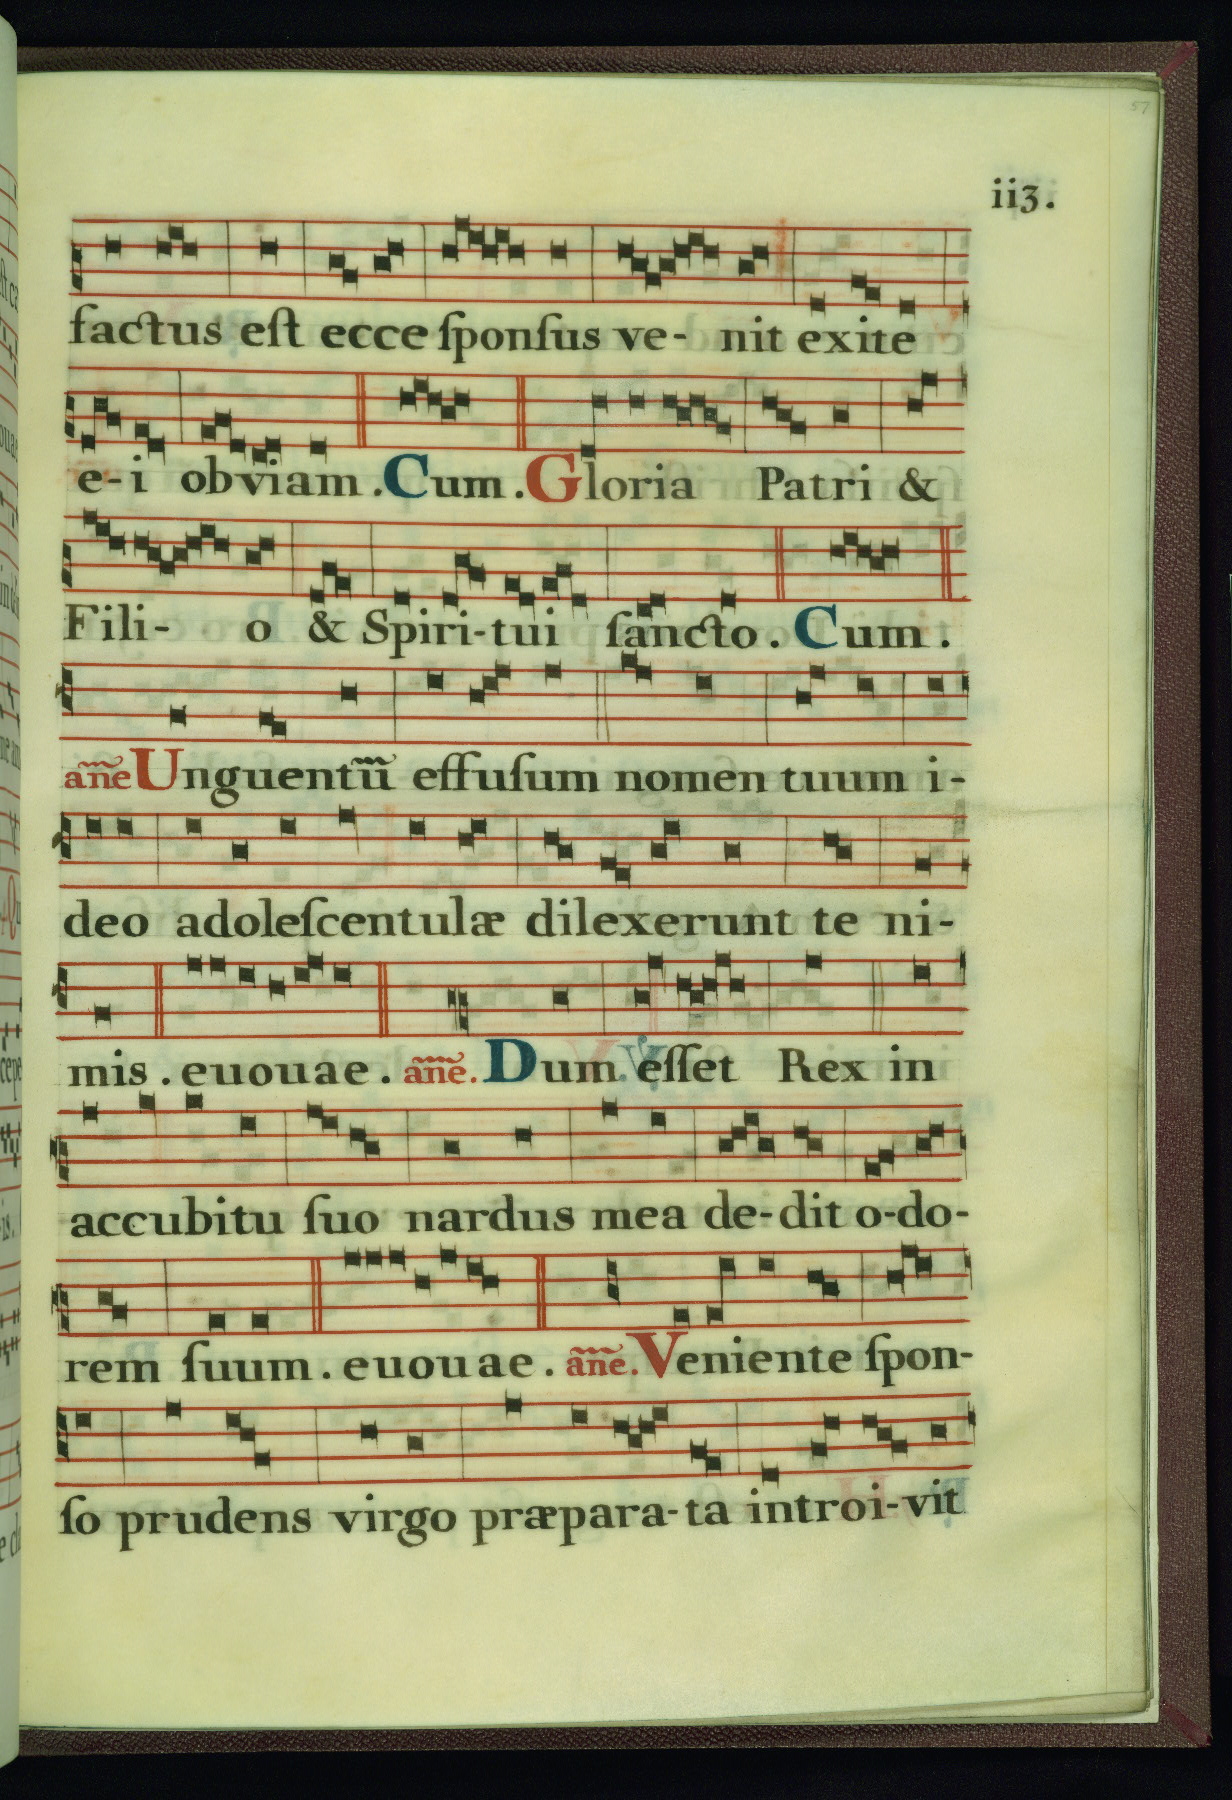 57
iiȝ.
factus eſt ecce ſponſus ve- nit exite
e-i obviam. Cum. Gloria Patri &
Fili- o & Spiri-tui ſancto. Cum.
añe Unguentũ effuſum nomen tuum i-
deo adoleſcentulæ dilexerunt te ni-
mis. euouae. añe. Dum eſſet Rex in
accubitu ſuo nardus mea de-dit o-do-
rem ſuum. euouae. añe. Veniente ſpon-
ſo prudens virgo præpara-ta introi-vit